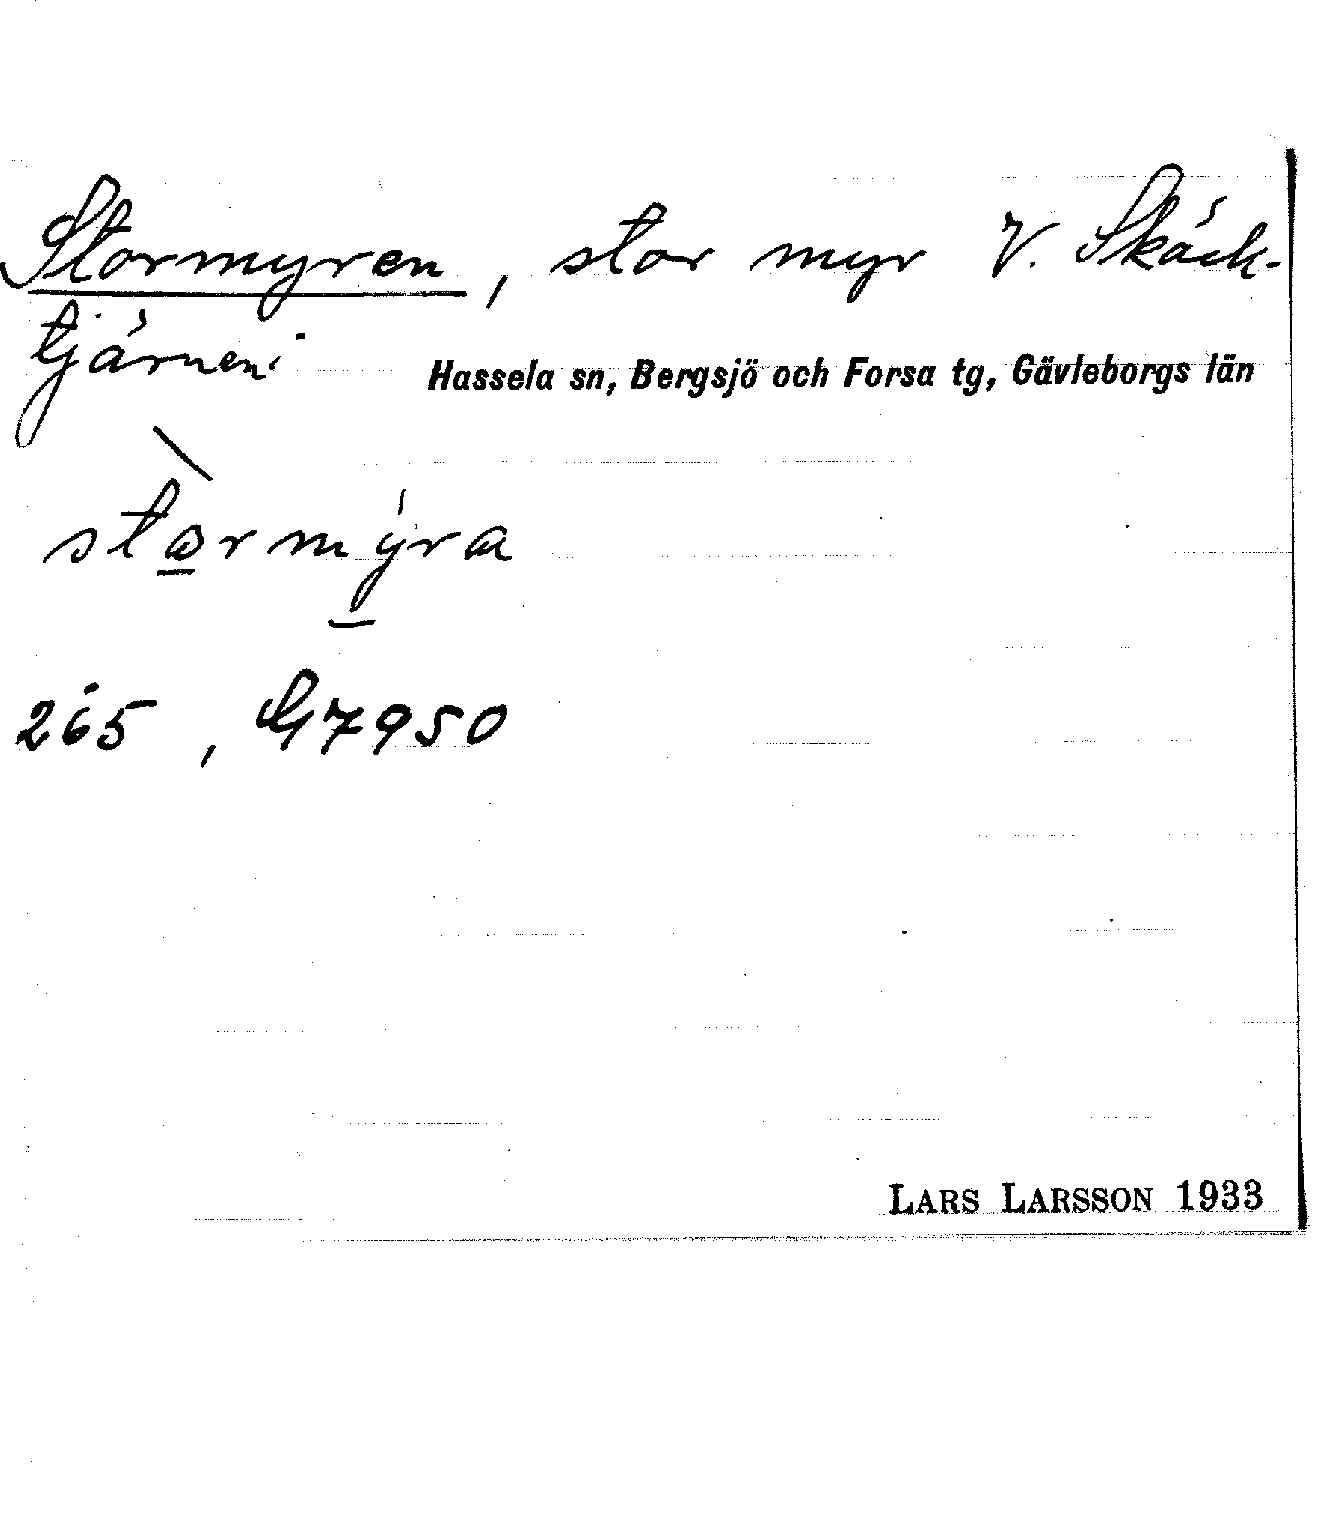 Stormyren, stor myr V. Skäck-
tjärnen i Hassela sn, Bergsjö och Forsa tg, Gävleborgs län
stormýra
265,
LARS LARSSON 1933